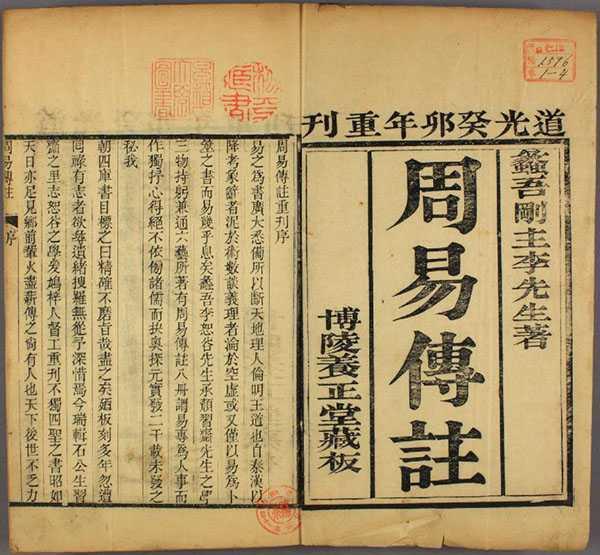 道光癸卯年重刊
蠡吾剛主李先生著
周易傳註
博陵養正堂藏板
周易傳註重刊序
易之為書廣大悉備所以斷天地理人倫明王道也自秦漢以
降考象辭者泥於術數談義理者淪於空虛或又僅以易為卜
筮之書而易幾乎息矣蠡吾李恕谷先生承顏習齋先生之學
三物持躬兼通六藝所著有周易傳註八冊謂易專為人事而
作獨抒心得絕不依傍諸儒而抉奧探元實發二千載未發之
秘我
朝四庫書目標之曰精確不磨旨哉盡之矣廼板刻多年忽遭
回祿有志者欲尋遺緒搜羅無從予深惜焉今瑞輯石公生習
齋之里志恕谷之學爰鳩梓人督工重刊不獨四聖之書昭如
天日亦足見鄉前輩火盡薪傳之尚有人也天下後世不乏力
周易傳註
序
1596
1-4